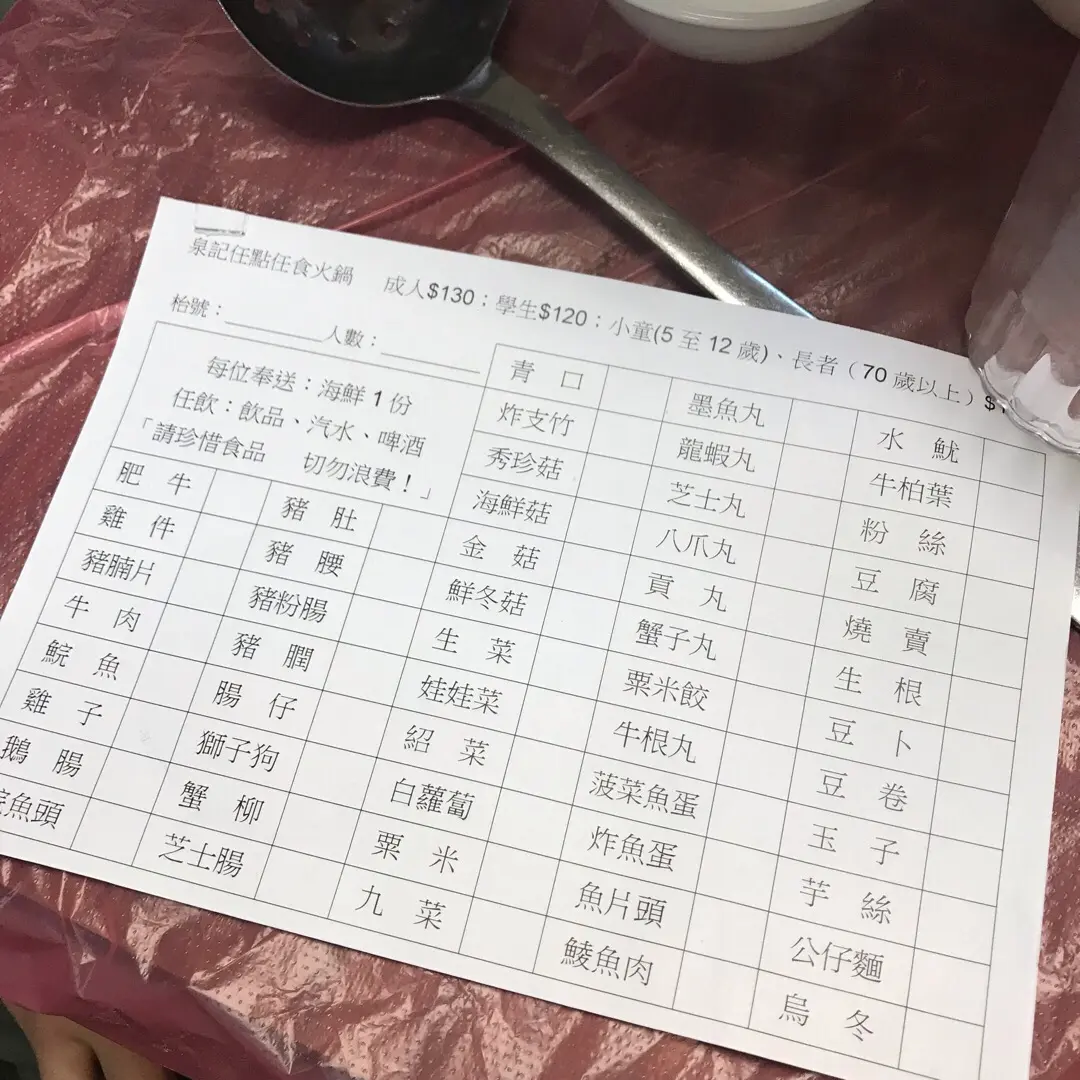 泉記任點任食火鍋 成人$130；學生$120；小童(5 至 12 歲)、長者（70 歲以上）
枱號：________人數：________
每位奉送：海鮮 1 份
任飲：飲品、汽水、啤酒
「請珍惜食品 切勿浪費！」
肥 牛
雞 件
豬腩片
牛 肉
鯇 魚
雞 子
鵝 腸
魚頭
豬 肚
豬 腰
豬粉腸
豬 膶
腸 仔
獅子狗
蟹 柳
芝士腸
青 口
炸支竹
秀珍菇
海鮮菇
金 菇
鮮冬菇
生 菜
娃娃菜
紹 菜
白蘿蔔
粟 米
九 菜
墨魚丸
龍蝦丸
芝士丸
八爪丸
貢 丸
蟹子丸
粟米餃
牛根丸
菠菜魚蛋
炸魚蛋
魚片頭
鯪魚肉
水 魷
牛柏葉
粉 絲
豆 腐
燒 賣
生 根
豆 卜
豆 卷
玉 子
芋 絲
公仔麵
烏 冬